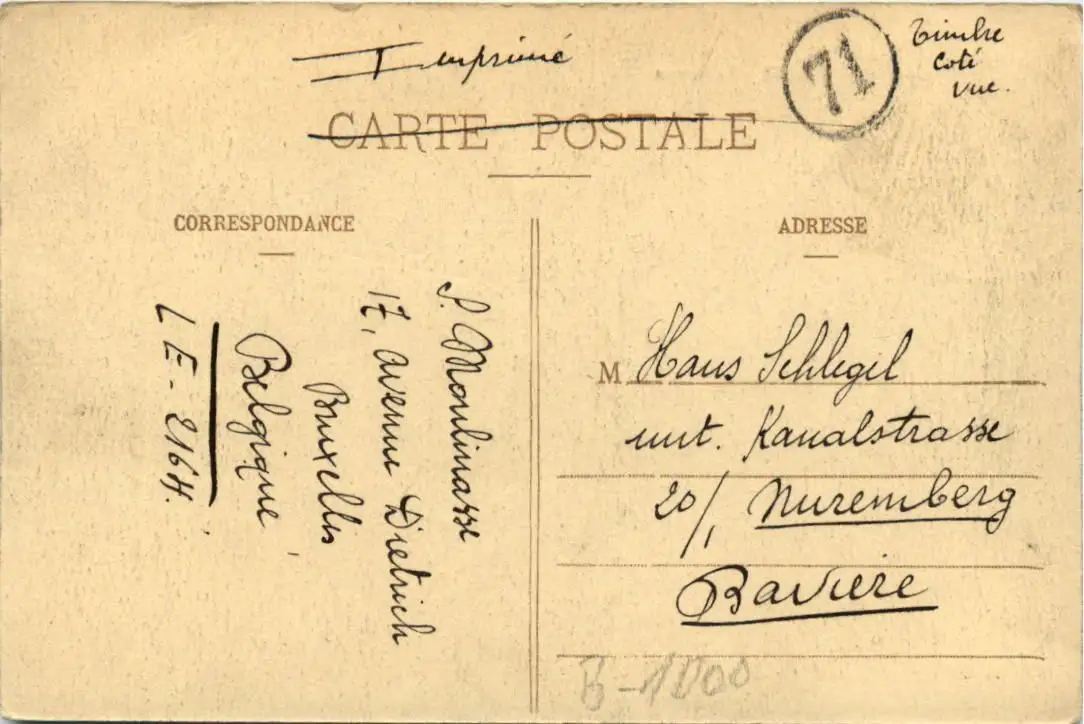 Imprimé
71
Timbre
Coté
vue.
CARTE POSTALE
CORRESPONDANCE
S. Moulinasse
17, avenue Dietrich
Bruxelles
Belgique
L E - 2164.
ADRESSE
M Hans Schlegel
unt. Kanalstrasse
20/1 Nuremberg
Bavière
B-1000